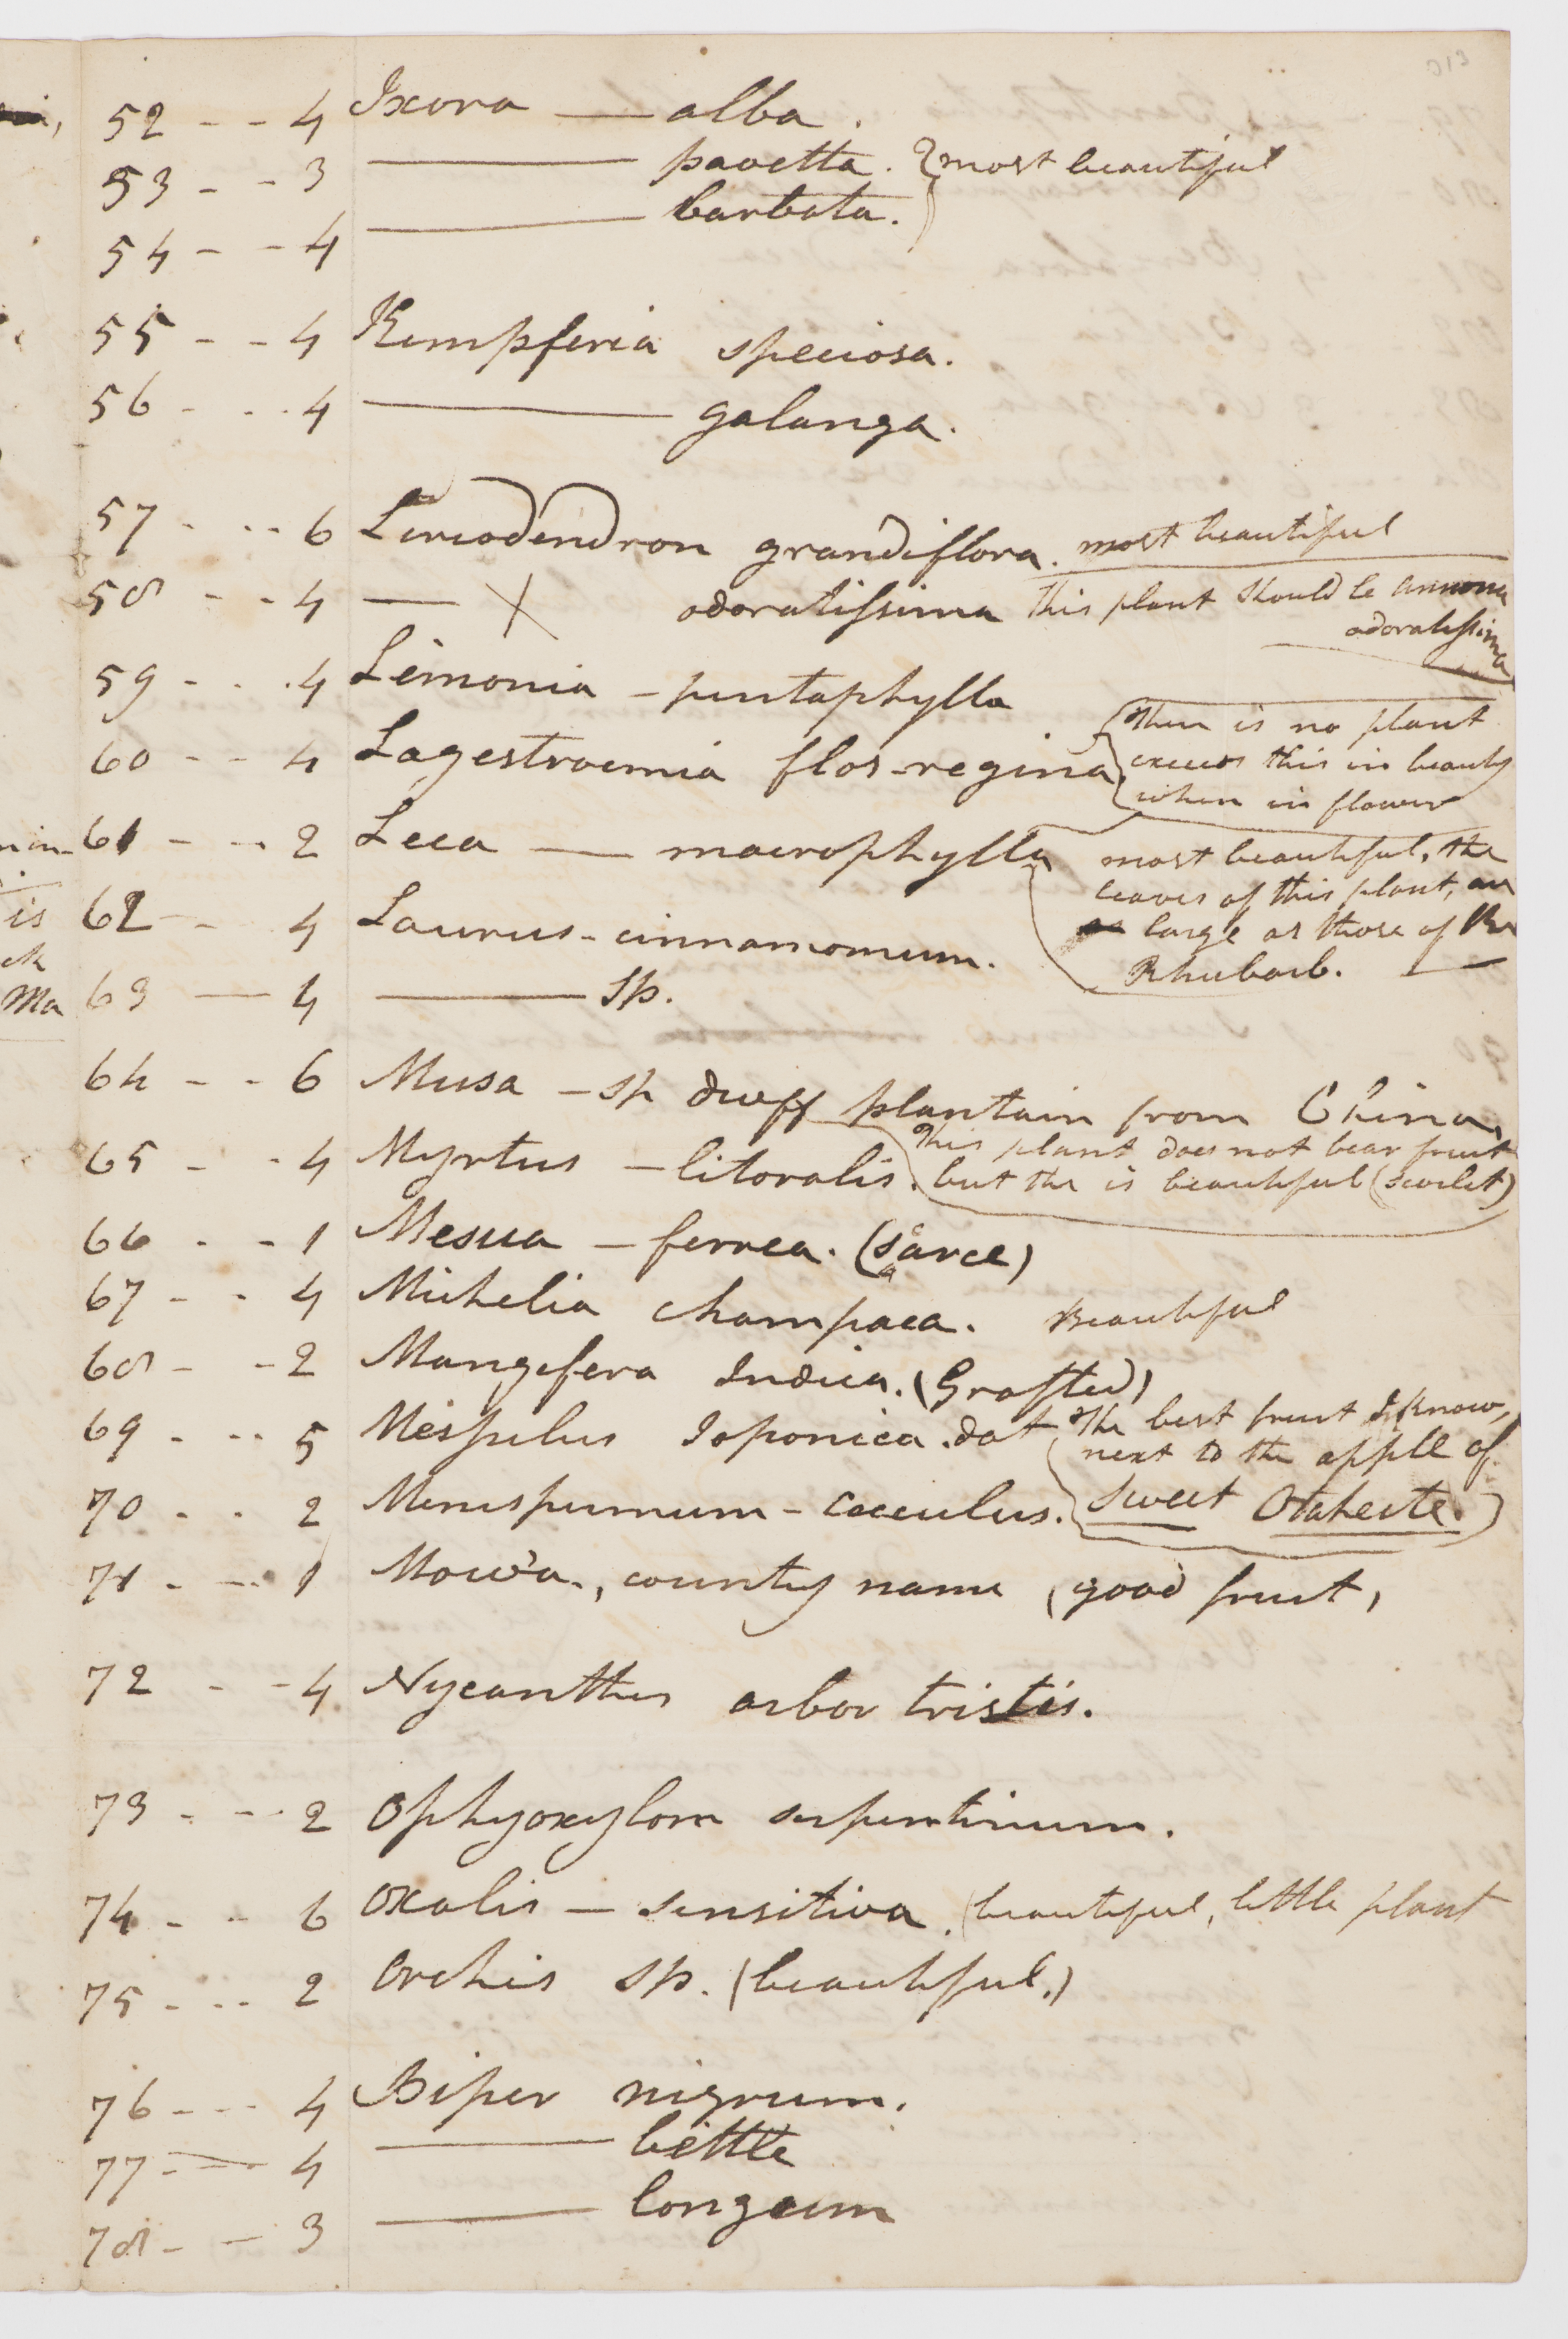 013
52 - - 4 Ixora — alba.
53 - - 3 ——— pavetta. } most beautiful
54 - - 4 ——— barbata. }
55 - - 4 Kempferia speciosa.
56 - - - 4 ——— galanga.
57 - - - 6 Liriodendron grandiflora. most beautiful
58 - - 4 — X odoratissima This plant should be annona
odoratissima
59 - - - 4 Limonia - pentaphylla
60 - - 4 Lagestroemia flos-regina { There is no plant
exceeds this in beauty
when in flower
61 - - - 2 Leea — macrophylla most beautiful, the
leaves of this plant, are
as large as those of the
Rhubarb.
62 - - 4 Laurus - cinnamomum.
63 — 4 ——— sp.
64 - - 6 Musa - sp dwff plantain from China,
This plant does not bear fruit
but the is beautiful (scarlet)
65 - - 4 Myrtus - litoralis.
66 - - 1 Mesua - ferrea. (sarce)
67 - - 4 Michelia champaca. Beautiful
68 - - 2 Mangefera Indica. (Grafted)
69 - - - 5 Mespulus Japonica. dat The best fruit I know,
next to the apple of
Sweet Otaheite.)
70 - - 2 Menispermum - cocculus.
71 - - - 1 Mowa., country name (good fruit,
72 - - 4 Nycanthes arbor tristis.
73 - - - 2 Ophyoxylon serpentinum.
74 - - 6 Oxalis - sensitiva. (beautiful, little plant
75 - - - 2 Orchis sp. (beautiful.)
76 - - - 4 Piper nigrum.
77 - - 4 ——— bettle
78 - - 3 ——— longeum
min-
is
ck
Ma